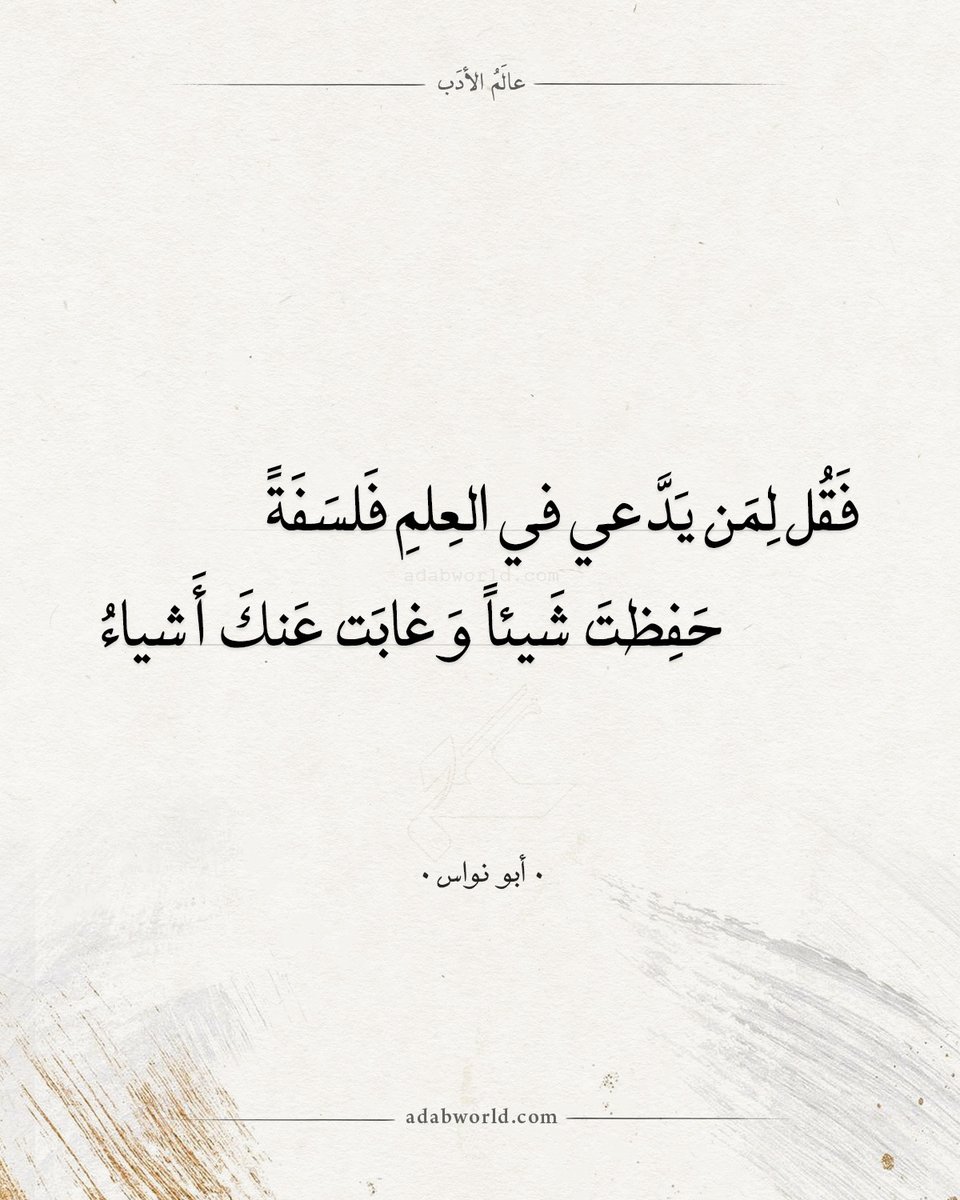 عالَمُ الأدَب
فَقُل لِمَن يَدَّعي في العِلمِ فَلسَفَةً
adabworld.com
حَفِظتَ شَيئاً وَ غابَت عَنكَ أَشياءُ
• أبو نواس •
adabworld.com